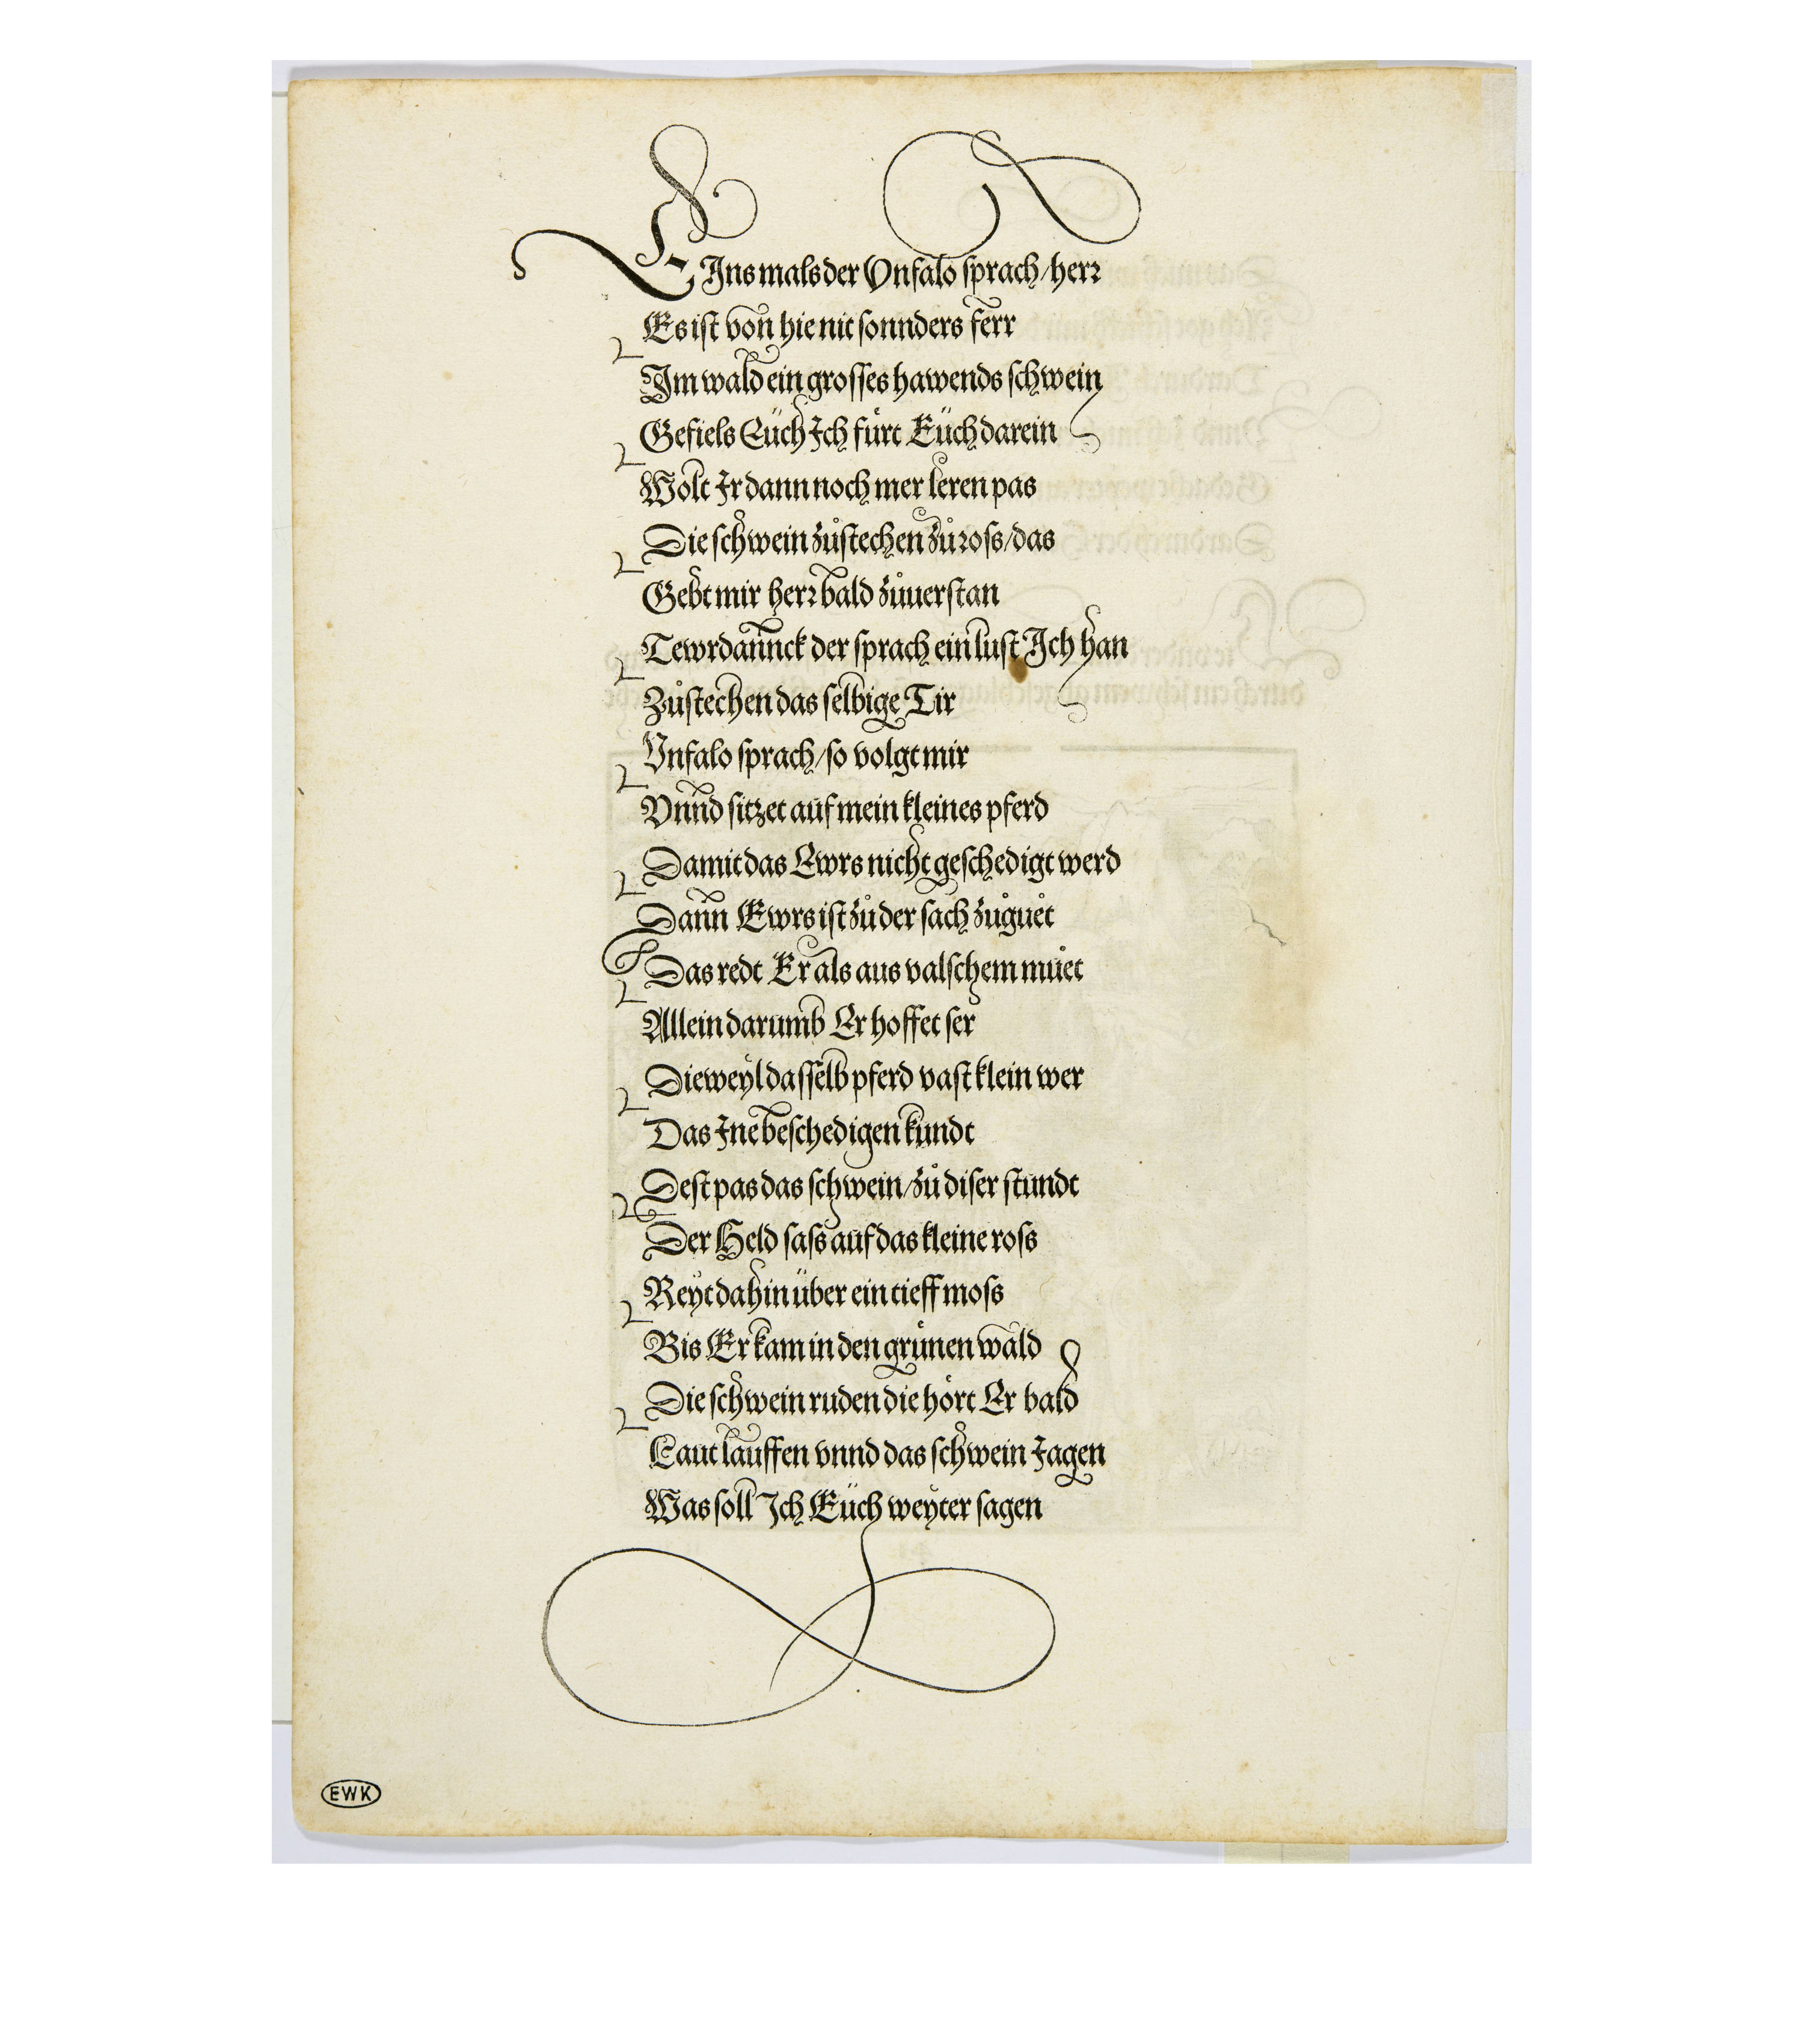 EIns mals der Vnfalo sprach/herr
Es ist von hie nit sonnders ferr
Im wald ein grosses hawends schwein
Gefiels Eüch Ich fůrt Eüch darein
Wolt Ir dann noch mer leren pas
Die schwein zůstechen zů ross/das
Gebt mir herr bald zůuerstan
Tewrdannck der sprach ein lust Ich han
Zůstechen das selbige Tir
Vnfalo sprach/so volgt mir
Vnnd sitzet auf mein kleines pferd
Damit das Ewrs nicht geschedigt werd
Dann Ewrs ist zů der sach zůguet
Das redt Er als aus valschem můet
Allein darumb Er hoffet ser
Dieweyl dasselb pferd vast klein wer
Das Ine beschedigen kundt
Dest pas das schwein/zů diser stundt
Der Held sass auf das kleine ross
Reyt dahin über ein tieff moss
Bis Er kam in den grůnen wald
Die schwein ruden die hört Er bald
Laut lauffen vnnd das schwein Jagen
Was soll Ich Eüch weyter sagen
EWK